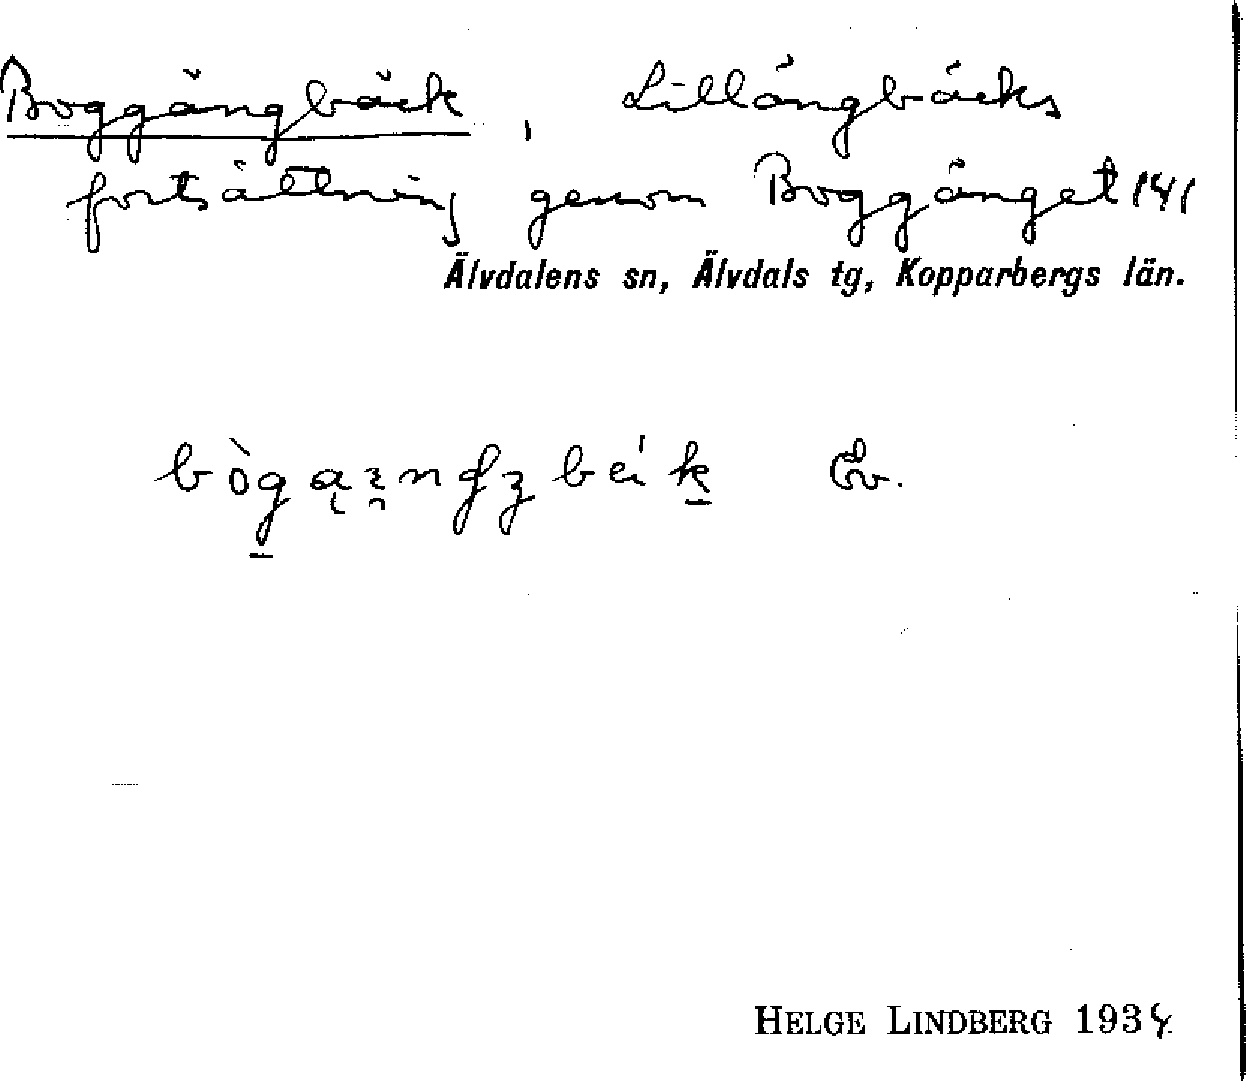 Boggängbäck, Lillängbäcks
fortsättning genom Boggänget 141
Älvdalens sn, Älvdals tg, Kopparbergs län.
Ev.
HELGE LINDBERG 1934